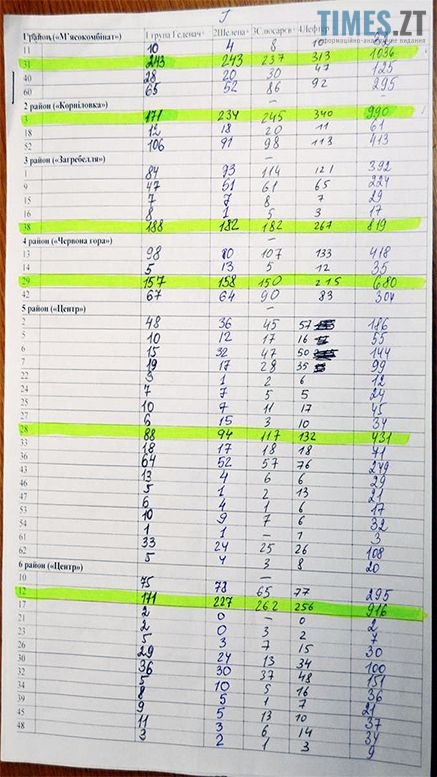 I
TIMES.ZT
інформаційно-аналітичне видання
1 район («М'ясокомбінат») 1 група Геденач 2 Шелена 3 Слюсарєв 4 Лефтер
11 10 4 8 10 32
31 243 243 237 313 1036
40 28 20 30 47 125
60 65 52 86 92 295
2 район («Корніловка») –
3 171 234 245 340 990
18 12 18 20 11 61
52 106 91 98 113 413
3 район («Загребелля») –
1 84 73 114 121 392
9 47 51 61 65 224
15 7 7 8 7 29
16 8 1 5 3 17
38 188 182 182 267 819
4 район («Червона гора») –
13 98 80 107 133 418
14 5 13 5 12 35
29 157 158 150 215 680
42 67 64 90 83 304
5 район («Центр») –
2 48 36 45 57 186
5 10 12 17 16 55
6 15 32 47 50 144
7 19 17 28 35 99
22 3 1 2 6 12
24 7 7 5 5 24
25 10 7 11 17 45
27 6 15 3 10 34
28 88 94 117 132 431
33 18 17 18 18 71
36 64 52 57 76 249
43 13 4 6 6 29
46 5 1 2 13 21
47 6 4 1 6 17
53 10 9 7 6 32
54 1 1 – 1 3
61 33 24 25 26 108
62 5 4 3 8 20
6 район («Центр») –
10 75 78 65 77 295
12 171 227 262 256 916
17 2 0 – 0 2
21 2 0 3 2 7
23 5 3 7 15 30
30 29 24 13 34 100
32 36 30 37 48 151
34 5 10 5 16 36
39 8 5 1 7 21
44 9 5 13 10 37
45 11 3 6 14 34
48 3 2 1 3 9